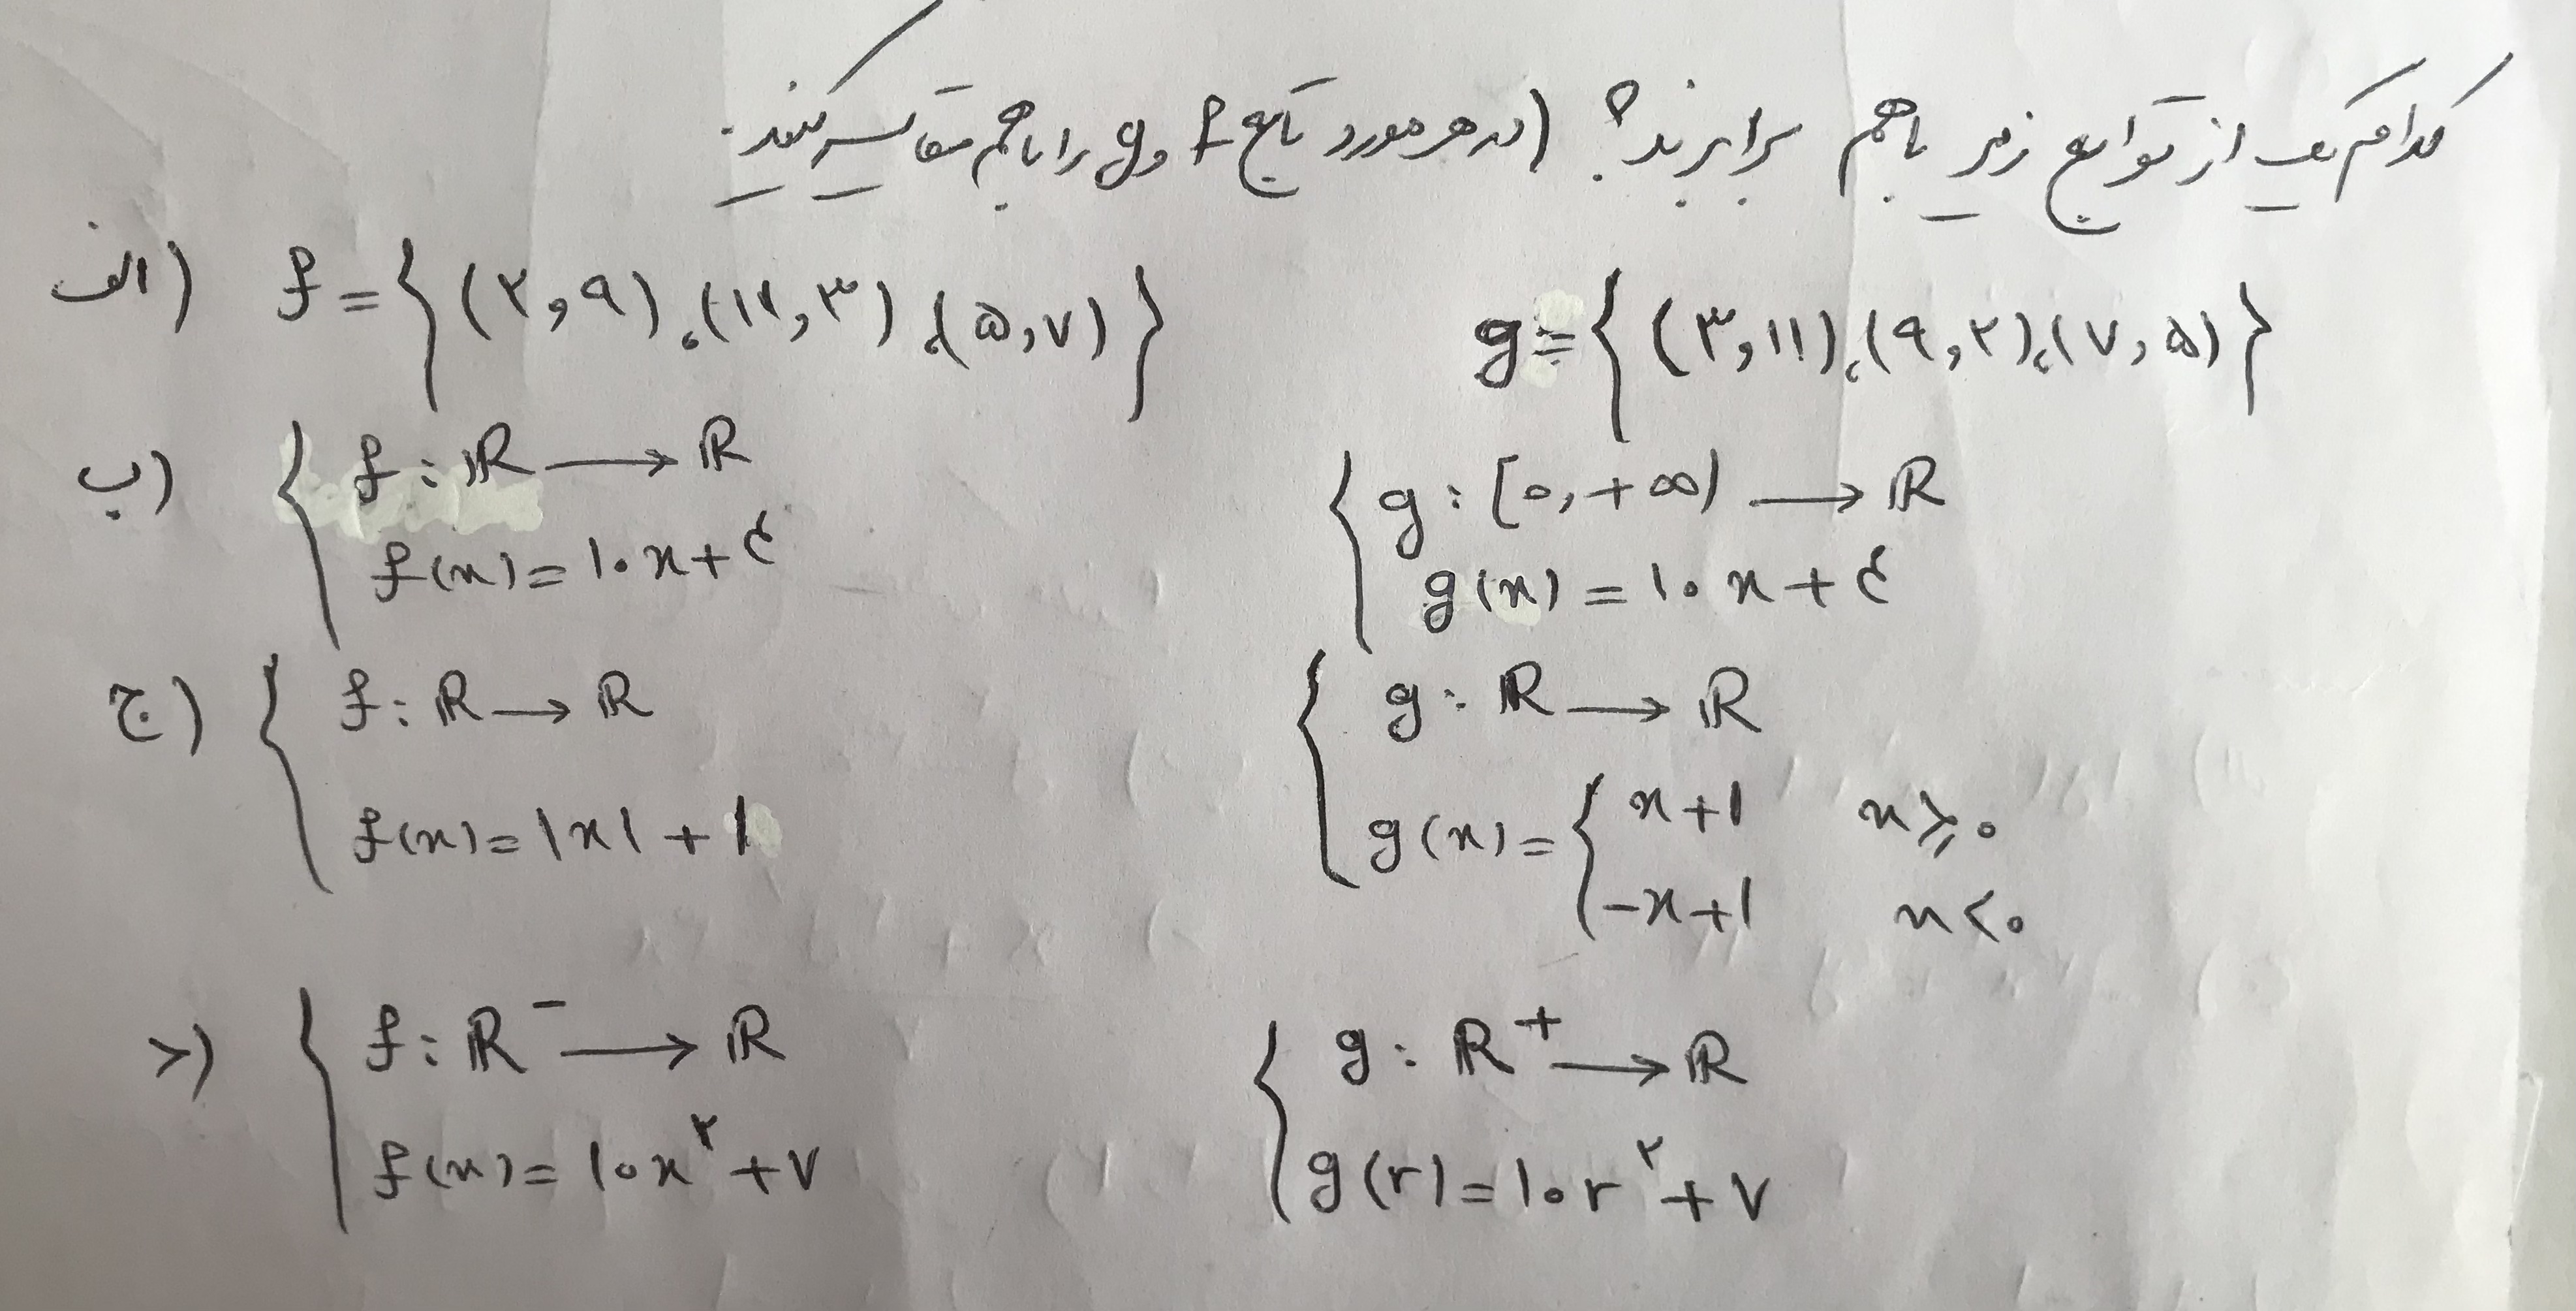 کدام یک از توابع زیر باهم برابرند؟ (در هر مورد تابع f و g را باهم مقایسه کنید.
الف) f = {(۲,۹)،(۱۲,۳)،(۵,۷)} g = {(۳,۱۱)،(۹,۲)،(۷,۵)}
ب) { f : ℝ → ℝ { g : [۰,+∞) → ℝ
f(x) = ۱۰x + ۴ g(x) = ۱۰x + ۴
ج) { f : ℝ → ℝ { g : ℝ → ℝ
f(x) = |x| + ۱ g(x) = { x+۱ x ⩾ ۰
-x+۱ x < ۰
د) { f : ℝ⁻ → ℝ { g : ℝ⁺ → ℝ
f(x) = ۱۰x^۲ + ۷ g(r) = ۱۰r^۲ + ۷